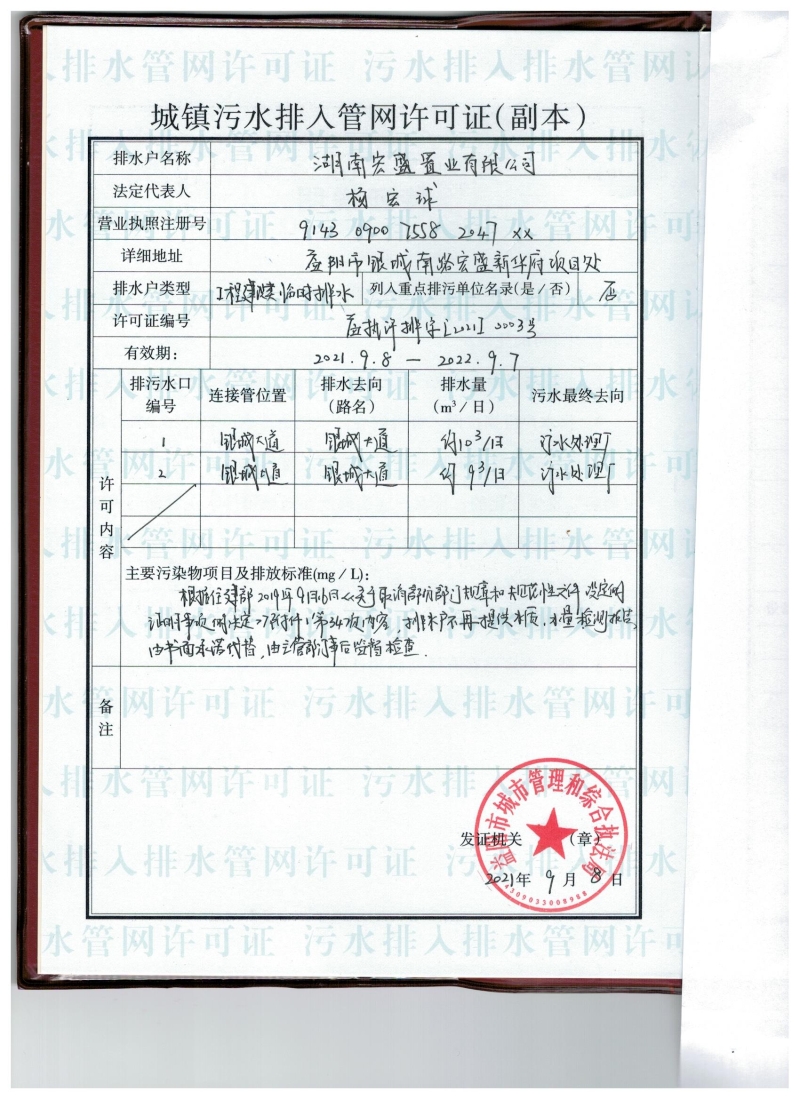 城镇污水排入管网许可证(副本)
排水户名称 湖南宏盛置业有限公司
法定代表人 杨宏球
营业执照注册号 9143 0900 7558 2047 xx
详细地址 益阳市银城南路宏盛新华府项目处
排水户类型 工程建筑临时排水 列入重点排污单位名录(是/否) 否
许可证编号 益执许排字[2021] 2003号
有效期: 2021.9.8 — 2022.9.7
许可内容
排污水口编号 连接管位置 排水去向(路名) 排水量(m³/日) 污水最终去向
1 银城大道 银城大道 约10³/日 污水处理厂
2 银城大道 银城大道 约9³/日 污水处理厂
主要污染物项目及排放标准(mg/L):
根据住建部2019年9月16日《关于取消部分部门规章和规范性文件设定的
证明事项的决定》附件1第34项内容,排水户不再提供水质、水量检测报告,
由书面承诺代替,由主管部门事后监督检查.
备注
发证机关 (章)
2021年 9月 8日
益阳市城市管理和综合执法局
4309033008988